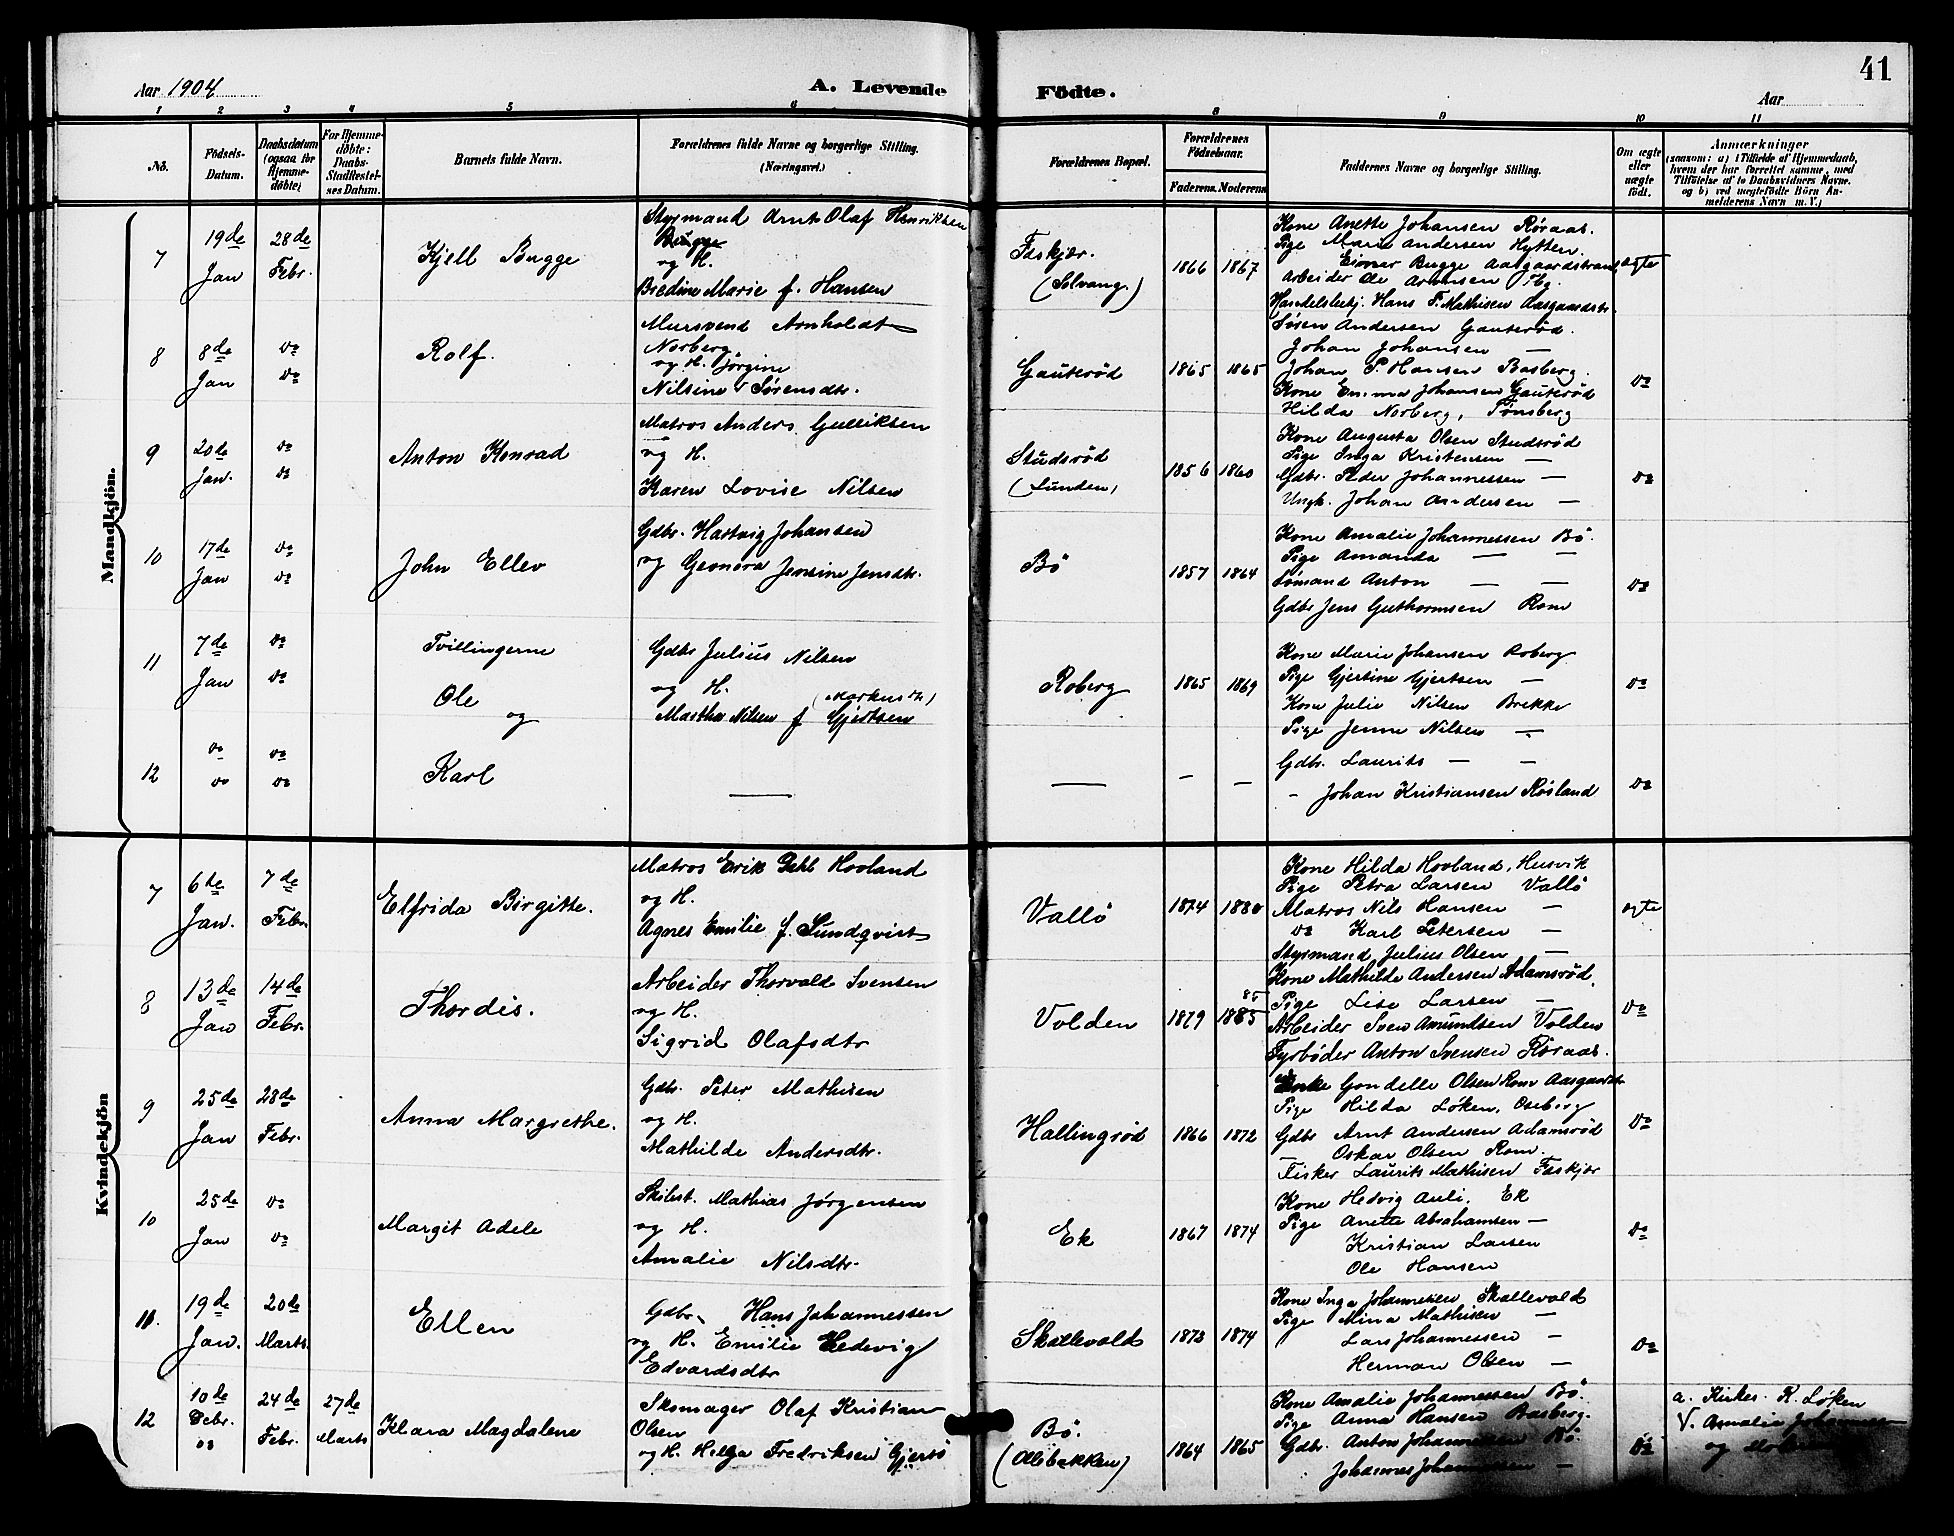 41
Aar 1904
A. Levende Födte.
Aar
1 2 3 4 5 6 8 9 10 11
No.
Födsels-Datum.
Daabsdatum (ogsaa for Hjemme-döbte)
For Hjemme-döbte: Daabs-Stadfestel-ses Datum.
Barnets fulde Navn.
Forældrenes fulde Navne og borgerlige Stilling.
(Næringsvei.)
Forældrenes Bopæl.
Forældrenes Födselsaar.
Faderens. Moderens
Faddernes Navne og borgerlige Stilling.
Om ægte eller uægte födt.
Anmærkninger
(saasom: a) i Tilfælde af Hjemmedaab,
hvem der har forrettet samme, med
Tilföielse af to Daabsvidners Navne.
og b) ved uægtefödte Börn An-
melderens Navn m. V.)
Mandkjön.
7
19de Jan
28de Febr.
Kjell Bugge
Styrmand Arnt Olaf Henriksen
Bugge
og H.
Bredine Marie f. Hansen
Fæskjær.
(Solvang.)
1866 1867
Kone Anette Johansen Røraas.
Pige Marie Andersen Hytten.
Einar Bugge Aasgaardstrand
Arbeider Ole Arntsen Hg.
Handelsbetj. Hans F. Mathisen Aasgaardstr.
ægte
8
8de Jan
do do
Rolf.
Mursvend Arnholdt
Norberg
og H. Jørgine
Nilsine Sørensdtr.
Gauterød
1865 1865
Søren Andersen Gauterød.
Johan Johansen —
Johan P. Hansen Basberg.
Kone Emma Johansen Gauterød
Hilda Norberg, Tønsberg
do
9
20de Jan.
do do
Anton Konrad
Matros Anders Gulliksen
og H.
Karen Lovise Nilsen
Studsrød
(Lunden)
1856 1860
Kone Augusta Olsen Studsrød
Pige Inga Kristensen —
Gdbr. Peder Johannessen —
Ungk. Johan Andersen —
do
10
17de Jan
do do
John Ellev
Gdbr. Hartvig Johansen
og Geonora Jensine Jensdtr.
Bö
1857 1864
Kone Amalie Johannessen Bö.
Pige Amanda — —
Sømand Anton — —
Gdbr Jens Guthormsen Rom
do
11
7de Jan
do do
Tvillingerne
Ole
og
Gdbr Julius Nilsen
og H.
(Markusdtr)
Martha Nilsen f Gjertsen
Roberg
1865 1869
Kone Marie Johansen Roberg
Pige Gjertine Gjertsen —
Kone Julie Nilsen Brekke
Pige Jenne Nilsen —
do
12
do do
do do
Karl
—
—
- -
Gdbr. Laurits — —
- Johan Kristiansen Røsland
do
Kvindekjön
7
6de Jan.
7de Febr.
Elfrida Birgitte.
Matros Erik Hovland
og H.
Agnes Emilie f. Sundqvist
Vallö
1874 1880
Kone Hilda Hovland, Husvik
Pige Petra Larsen Vallö
Matros Nils Hansen —
do Karl Petersen —
Styrmand Julius Olsen —
ægte
8
13de Jan
14de Febr.
Thordis.
Arbeider Thorvald Svensen
og H.
Sigrid Olafsdtr
Volden
1879 1885
85
Kone Mathilde Andersen Adamsrød.
Pige Lise Larsen —
Arbeider Sven Amundsen Volden
Fyrbøder Anton Svensen Røraas.
do
9
25de Jan
28de Febr.
Anna Margrethe.
Gdbr. Peter Mathisen
og H.
Mathilde Andersdtr.
Hallingrød
1866 1872
Enke Gondelle Olsen Rom Aasgaardstr
Pige Hilda Løken, Oseberg
Gdbr Arnt Andersen Adamsrød
— Oskar Olsen Rom.
Fisker Laurits Mathisen Fæskjær
do
10
25de Jan
do do
Margit Adele
Skibst. Mathias Jörgensen
og H.
Amalie Nilsdtr.
Ek
1867 1874
Kone Hedvig Auli, Ek
Pige Anette Abrahamsen —
Kristian Larsen
Ole Hansen
do
11.
19de Jan.
20de Marts.
Ellen
Gdbr. Hans Johannessen
og H. Emilie Hedevig
Edvardsdtr
Skallevold
1873 1874
Kone Inga Johannesen Skallevold
Pige Mina Mathisen —
Lars Johannessen —
Herman Olsen —
do
12
10de Febr. do
24de Febr.
27de Marts
Klara Magdalene
Skomager Olaf Kristian
Olsen
og H. Helga Fredriksen Gjertø
Bö.
(Olsbakken)
1864 1865
Kone Amalie Johannessen Bö.
Pige Anna Hansen Basberg.
Gdbr. Anton Johannessen Bö.
Johannes Johannessen —
do
a. Kirkes. R. Løken
V. Amalie Johannes-
og